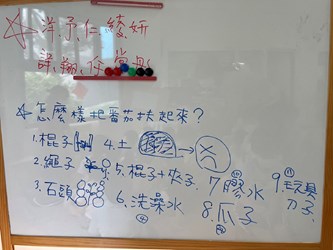 洋予、仁、綾妍
詠、翔、仔、
怎麼樣把番茄扶起來？
1.棍子
2.繩子
3.石頭
4.土
5.棍子+夾子
6.洗澡水
7.膠水
8.爪子
9.玩具刀子